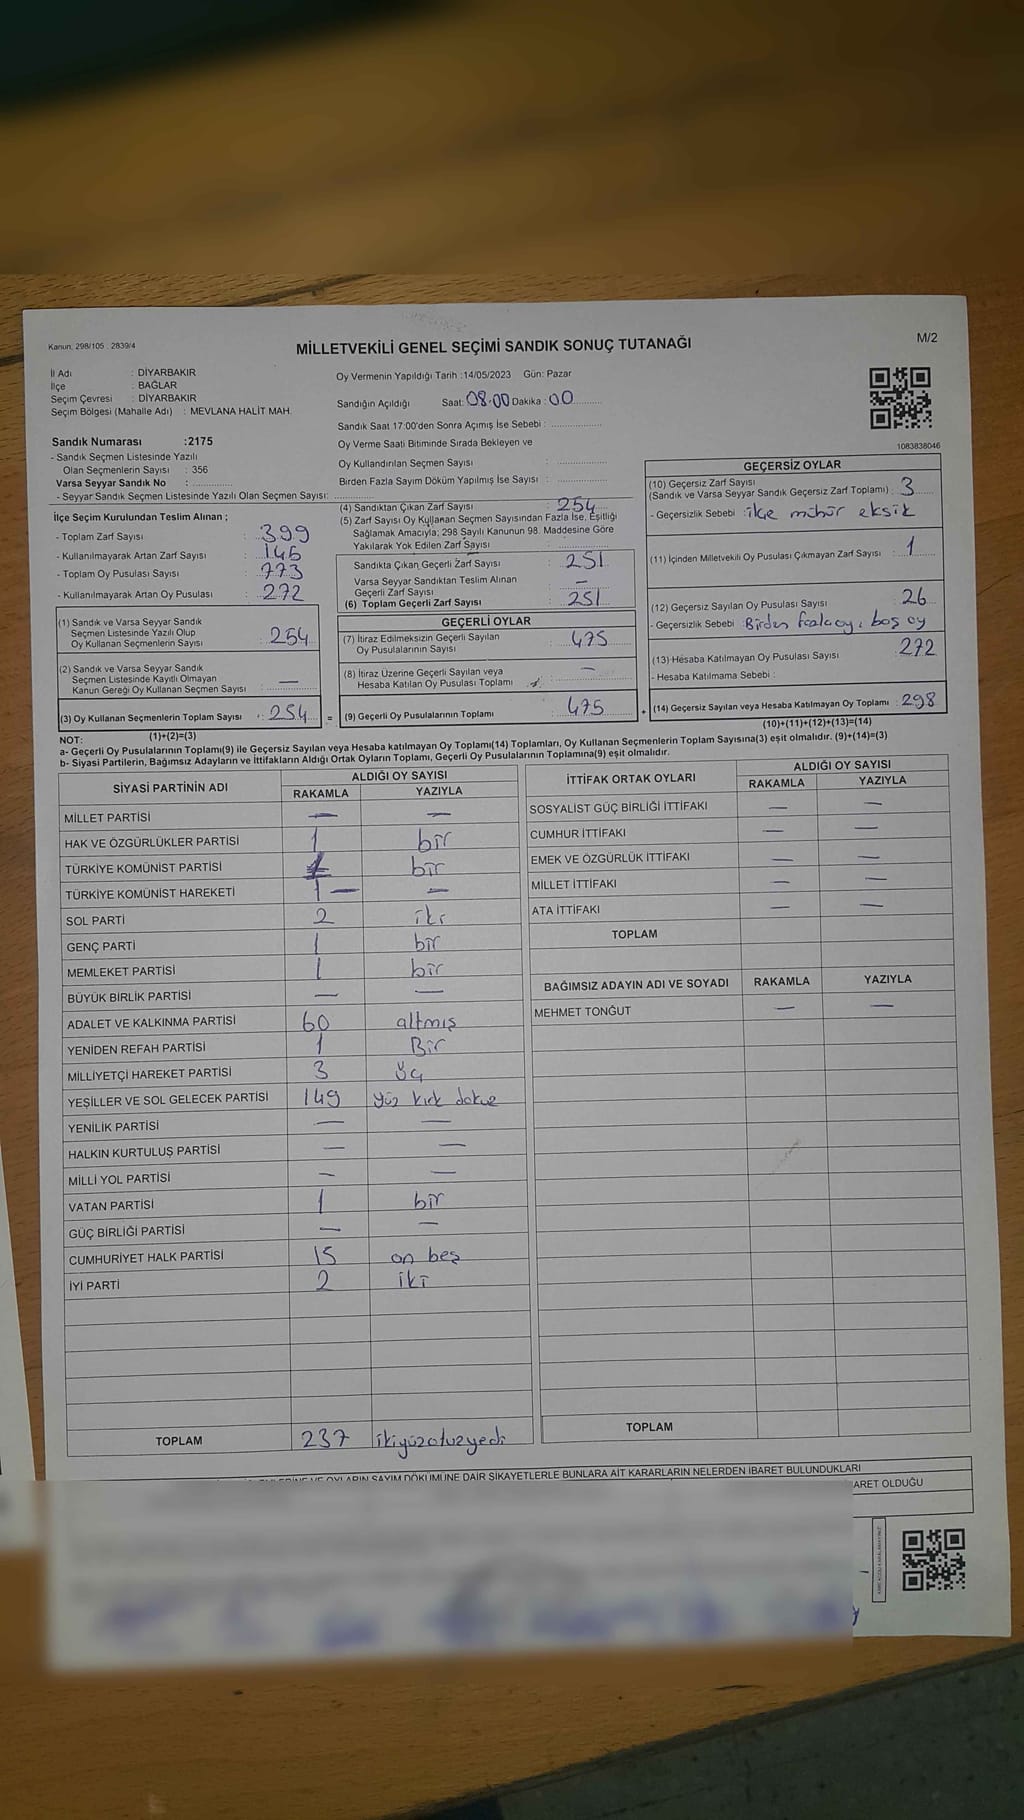 Kanun. 298/105 . 2839/4
MİLLETVEKİLİ GENEL SEÇİMİ SANDIK SONUÇ TUTANAĞI
M/2
İl Adı : DİYARBAKIR
İlçe : BAĞLAR
Seçim Çevresi : DİYARBAKIR
Seçim Bölgesi (Mahalle Adı) : MEVLANA HALİT MAH.
Sandık Numarası :2175
- Sandık Seçmen Listesinde Yazılı
Olan Seçmenlerin Sayısı : 356
Varsa Seyyar Sandık No :
- Seyyar Sandık Seçmen Listesinde Yazılı Olan Seçmen Sayısı:
Oy Vermenin Yapıldığı Tarih :14/05/2023 Gün: Pazar
Sandığın Açıldığı Saat: 08.00 Dakika : 00
Sandık Saat 17:00'den Sonra Açımış İse Sebebi :
Oy Verme Saati Bitiminde Sırada Bekleyen ve
Oy Kullandırılan Seçmen Sayısı :
Birden Fazla Sayım Döküm Yapılmış İse Sayısı :
1083838046
İlçe Seçim Kurulundan Teslim Alınan ;
- Toplam Zarf Sayısı : 399
- Kullanılmayarak Artan Zarf Sayısı : 146
- Toplam Oy Pusulası Sayısı : 773
- Kullanılmayarak Artan Oy Pusulası : 272
(1) Sandık ve Varsa Seyyar Sandık
Seçmen Listesinde Yazılı Olup
Oy Kullanan Seçmenlerin Sayısı : 254
(2) Sandık ve Varsa Seyyar Sandık
Seçmen Listesinde Kayıtlı Olmayan
Kanun Gereği Oy Kullanan Seçmen Sayısı : —
(3) Oy Kullanan Seçmenlerin Toplam Sayısı : 254
(1)+(2)=(3)
(4) Sandıktan Çıkan Zarf Sayısı : 254
(5) Zarf Sayısı Oy Kullanan Seçmen Sayısından Fazla İse, Eşitliği
Sağlamak Amacıyla; 298 Sayılı Kanunun 98. Maddesine Göre
Yakılarak Yok Edilen Zarf Sayısı :
Sandıkta Çıkan Geçerli Zarf Sayısı : 251
Varsa Seyyar Sandıktan Teslim Alınan
Geçerli Zarf Sayısı : —
(6) Toplam Geçerli Zarf Sayısı : 251
GEÇERLİ OYLAR
(7) İtiraz Edilmeksizin Geçerli Sayılan
Oy Pusulalarının Sayısı : 475
(8) İtiraz Üzerine Geçerli Sayılan veya
Hesaba Katılan Oy Pusulası Toplamı : —
= (9) Geçerli Oy Pusulalarının Toplamı : 475
GEÇERSİZ OYLAR
(10) Geçersiz Zarf Sayısı
(Sandık ve Varsa Seyyar Sandık Geçersiz Zarf Toplamı) : 3
- Geçersizlik Sebebi : ilçe mühür eksik
(11) İçinden Milletvekili Oy Pusulası Çıkmayan Zarf Sayısı : 1
(12) Geçersiz Sayılan Oy Pusulası Sayısı : 26
- Geçersizlik Sebebi : Birden fazla oy, boş oy
(13) Hesaba Katılmayan Oy Pusulası Sayısı : 272
- Hesaba Katılmama Sebebi :
+ (14) Geçersiz Sayılan veya Hesaba Katılmayan Oy Toplamı : 298
(10)+(11)+(12)+(13)=(14)
NOT:
a- Geçerli Oy Pusulalarının Toplamı(9) ile Geçersiz Sayılan veya Hesaba katılmayan Oy Toplamı(14) Toplamları, Oy Kullanan Seçmenlerin Toplam Sayısına(3) eşit olmalıdır. (9)+(14)=(3)
b- Siyasi Partilerin, Bağımsız Adayların ve İttifakların Aldığı Ortak Oyların Toplamı, Geçerli Oy Pusulalarının Toplamına(9) eşit olmalıdır.
SİYASİ PARTİNİN ADI ALDIĞI OY SAYISI
RAKAMLA YAZIYLA
MİLLET PARTİSİ — —
HAK VE ÖZGÜRLÜKLER PARTİSİ 1 bir
TÜRKİYE KOMÜNİST PARTİSİ 1 bir
TÜRKİYE KOMÜNİST HAREKETİ 1 — —
SOL PARTİ 2 iki
GENÇ PARTİ 1 bir
MEMLEKET PARTİSİ 1 bir
BÜYÜK BİRLİK PARTİSİ — —
ADALET VE KALKINMA PARTİSİ 60 altmış
YENİDEN REFAH PARTİSİ 1 Bir
MİLLİYETÇİ HAREKET PARTİSİ 3 üç
YEŞİLLER VE SOL GELECEK PARTİSİ 149 yüz kırk dokuz
YENİLİK PARTİSİ — —
HALKIN KURTULUŞ PARTİSİ — —
MİLLİ YOL PARTİSİ — —
VATAN PARTİSİ 1 bir
GÜÇ BİRLİĞİ PARTİSİ — —
CUMHURİYET HALK PARTİSİ 15 on beş
İYİ PARTİ 2 iki
TOPLAM 237 ikiyüzotuzyedi
İTTİFAK ORTAK OYLARI ALDIĞI OY SAYISI
RAKAMLA YAZIYLA
SOSYALİST GÜÇ BİRLİĞİ İTTİFAKI — —
CUMHUR İTTİFAKI — —
EMEK VE ÖZGÜRLÜK İTTİFAKI — —
MİLLET İTTİFAKI — —
ATA İTTİFAKI — —
TOPLAM
BAĞIMSIZ ADAYIN ADI VE SOYADI RAKAMLA YAZIYLA
MEHMET TONĞUT — —
TOPLAM
VE OYLARIN SAYIM DÖKÜMÜNE DAİR ŞİKAYETLERLE BUNLARA AİT KARARLARIN NELERDEN İBARET BULUNDUKLARI
OLDUĞU